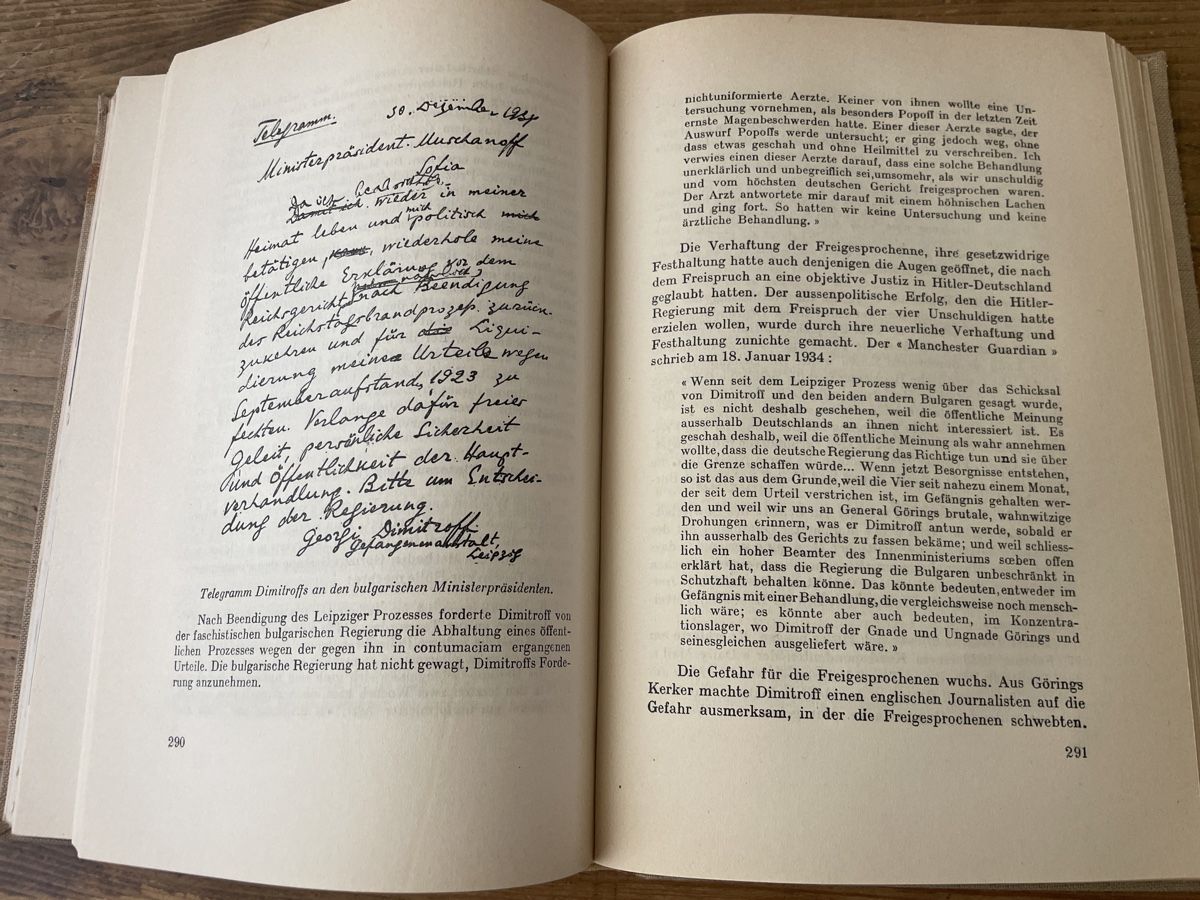 Telegramm. 30. Dezember 1934
Ministerpräsident Muschanoff
Sofia
Da ich beabsichtige
Damit ich wieder in meiner
Heimat leben und mich politisch mich
betätigen, wiederhole meine
öffentliche Erklärung vor dem
Reichsgericht, nach Beendigung
des Reichstagsbrandprozeß. zurück-
zukehren und für die Liqui-
dierung meines Urteils wegen
Septemberaufstand, 1923 zu
fechten. Verlange dafür freier
Geleit, persönliche Sicherheit
und Öffentlichkeit der Haupt-
verhandlung. Bitte um Entschei-
dung der Regierung.
Georgi Dimitroff
Gefangenenanstalt,
Leipzig
Telegramm Dimitroffs an den bulgarischen Ministerpräsidenten.
Nach Beendigung des Leipziger Prozesses forderte Dimitroff von
der faschistischen bulgarischen Regierung die Abhaltung eines öffent-
lichen Prozesses wegen der gegen ihn in contumaciam ergangenen
Urteile. Die bulgarische Regierung hat nicht gewagt, Dimitroffs Forde-
rung anzunehmen.
290
nichtuniformierte Aerzte. Keiner von ihnen wollte eine Un-
tersuchung vornehmen, als besonders Popoff in der letzten Zeit
ernste Magenbeschwerden hatte. Einer dieser Aerzte sagte, der
Auswurf Popoffs werde untersucht; er ging jedoch weg, ohne
dass etwas geschah und ohne Heilmittel zu verschreiben. Ich
verwies einen dieser Aerzte darauf, dass eine solche Behandlung
unerklärlich und unbegreiflich sei,umsomehr, als wir unschuldig
und vom höchsten deutschen Gericht freigesprochen waren.
Der Arzt antwortete mir darauf mit einem höhnischen Lachen
und ging fort. So hatten wir keine Untersuchung und keine
ärztliche Behandlung. »
Die Verhaftung der Freigesprochenne, ihre gesetzwidrige
Festhaltung hatte auch denjenigen die Augen geöffnet, die nach
dem Freispruch an eine objektive Justiz in Hitler-Deutschland
geglaubt hatten. Der aussenpolitische Erfolg, den die Hitler-
Regierung mit dem Freispruch der vier Unschuldigen hatte
erzielen wollen, wurde durch ihre neuerliche Verhaftung und
Festhaltung zunichte gemacht. Der « Manchester Guardian »
schrieb am 18. Januar 1934 :
« Wenn seit dem Leipziger Prozess wenig über das Schicksal
von Dimitroff und den beiden andern Bulgaren gesagt wurde,
ist es nicht deshalb geschehen, weil die öffentliche Meinung
ausserhalb Deutschlands an ihnen nicht interessiert ist. Es
geschah deshalb, weil die öffentliche Meinung als wahr annehmen
wollte,dass die deutsche Regierung das Richtige tun und sie über
die Grenze schaffen würde... Wenn jetzt Besorgnisse entstehen,
so ist das aus dem Grunde,weil die Vier seit nahezu einem Monat,
der seit dem Urteil verstrichen ist, im Gefängnis gehalten wer-
den und weil wir uns an General Görings brutale, wahnwitzige
Drohungen erinnern, was er Dimitroff antun werde, sobald er
ihn ausserhalb des Gerichts zu fassen bekäme; und weil schliess-
lich ein hoher Beamter des Innenministeriums sœben offen
erklärt hat, dass die Regierung die Bulgaren unbeschränkt in
Schutzhaft behalten könne. Das könnte bedeuten,entweder im
Gefängnis mit einer Behandlung,die vergleichsweise noch mensch-
lich wäre; es könnte aber auch bedeuten, im Konzentra-
tionslager, wo Dimitroff der Gnade und Ungnade Görings und
seinesgleichen ausgeliefert wäre. »
Die Gefahr für die Freigesprochenen wuchs. Aus Görings
Kerker machte Dimitroff einen englischen Journalisten auf die
Gefahr ausmerksam, in der die Freigesprochenen schwebten.
291